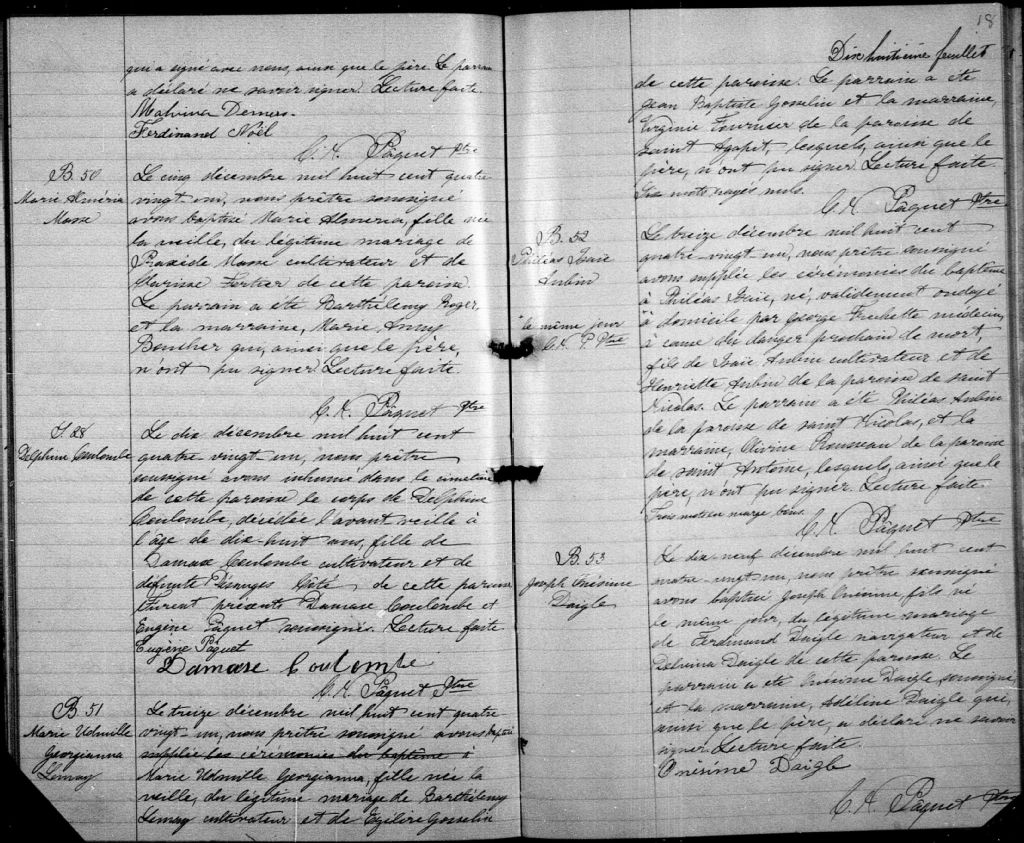 qui a signé avec nous, ainsi que le père. Le parrain
a déclaré ne savoir signer. Lecture faite.
Malvina Demers
Ferdinand Noël
Pâquet Ptre
B. 50
Marie Alméria
Masse
Le cinq décembre mil huit cent quatre
vingt un, nous prêtre soussigné
avons baptisé Marie Almeria, fille née
la veille, du légitime mariage de
Praxède Masse cultivateur et de
Clarisse Fortier de cette paroisse.
Le parrain a été Barthélemy Roger,
et la marraine, Marie, Anny
Boucher qui, ainsi que le père,
n'ont pu signer. Lecture faite.
Pâquet Ptre
S. 28
Delphine Coulombe
Le dix décembre mil huit cent
quatre-vingt un, nous prêtre
soussigné avons inhumé dans le cimetière
de cette paroisse le corps de Delphine
Coulombe, décédée l'avant veille à
l'âge de dix-huit ans, fille de
Damase Coulombe cultivateur et de
défunte Côté de cette paroisse
Furent présents Damase Coulombe et
Eugène Pâquet soussignés. Lecture faite
Eugène Pâquet
Damase Coulombe
Pâquet Ptre
B. 51
Marie Udmille
Georgianna
Lemay
Le treize décembre mil huit cent quatre
vingt-un, nous prêtre soussigné avons baptisé
supplée les cérémonies du baptême à
Marie Udmille Georgianna, fille née la
veille, du légitime mariage de Barthélemy
Lemay cultivateur et de Gosselin
18
Dix huitième feuillet
de cette paroisse. Le parrain a été
Jean Baptiste Gosselin et la marraine,
Virginie Fournier de la paroisse de
saint Agapit, lesquels, ainsi que le
père, n'ont pu signer. Lecture faite
Six mots rayés nuls.
Pâquet Ptre
B. 52
Philéas Isaïe
Aubin
le même jour
P. Ptre
Le treize décembre mil huit cent
quatre-vingt un, nous prêtre soussigné
avons supplée les cérémonies du baptême
à Philéas Isaïe, né, validement ondoyé
à domicile par George Frechette médecin,
à cause du danger prochain de mort,
fils de Isaïe Aubin cultivateur et de
Henriette Aubin de la paroisse de saint
Nicolas. Le parrain a été Philéas Aubin
de la paroisse de saint Nicolas, et la
marraine, Olivine Rousseau de la paroisse
de saint Antoine, lesquels, ainsi que le
père, n'ont pu signer. Lecture faite
Trois mots en marge bons.
Pâquet Ptre
B. 53
Joseph Onésime
Daigle
Le dix-neuf décembre mil huit cent
quatre-vingt un, nous prêtre soussigné
avons baptisé Joseph Onésime, fils né
le même jour, du légitime mariage
de Ferdinand Daigle navigateur et de
Delvina Daigle de cette paroisse. Le
parrain a été Onésime Daigle, soussigné,
et la marraine, Adéline Daigle qui,
ainsi que le père, a déclaré ne savoir
signer. Lecture faite.
Onésime Daigle
Pâquet Ptre